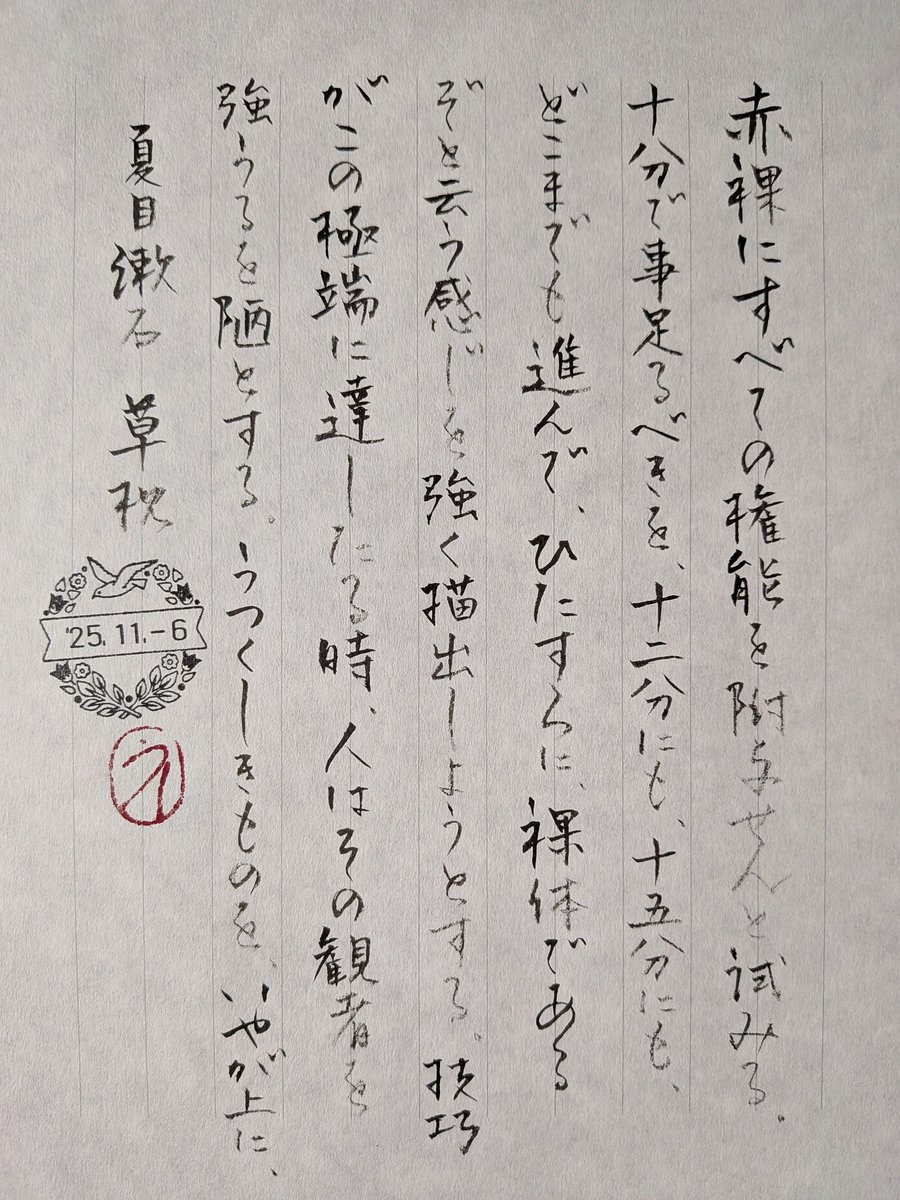 赤裸にすべての権能を附与せんと試みる。
十分で事足るべきを、十二分にも、十五分にも、
どこまでも進んで、ひたすらに、裸体である
ぞと云う感じを強く描出しようとする。技巧
がこの極端に達したる時、人はその観者を
強うるを陋とする。うつくしきものを、いやが上に、
夏目漱石 草枕
'25.11.-6